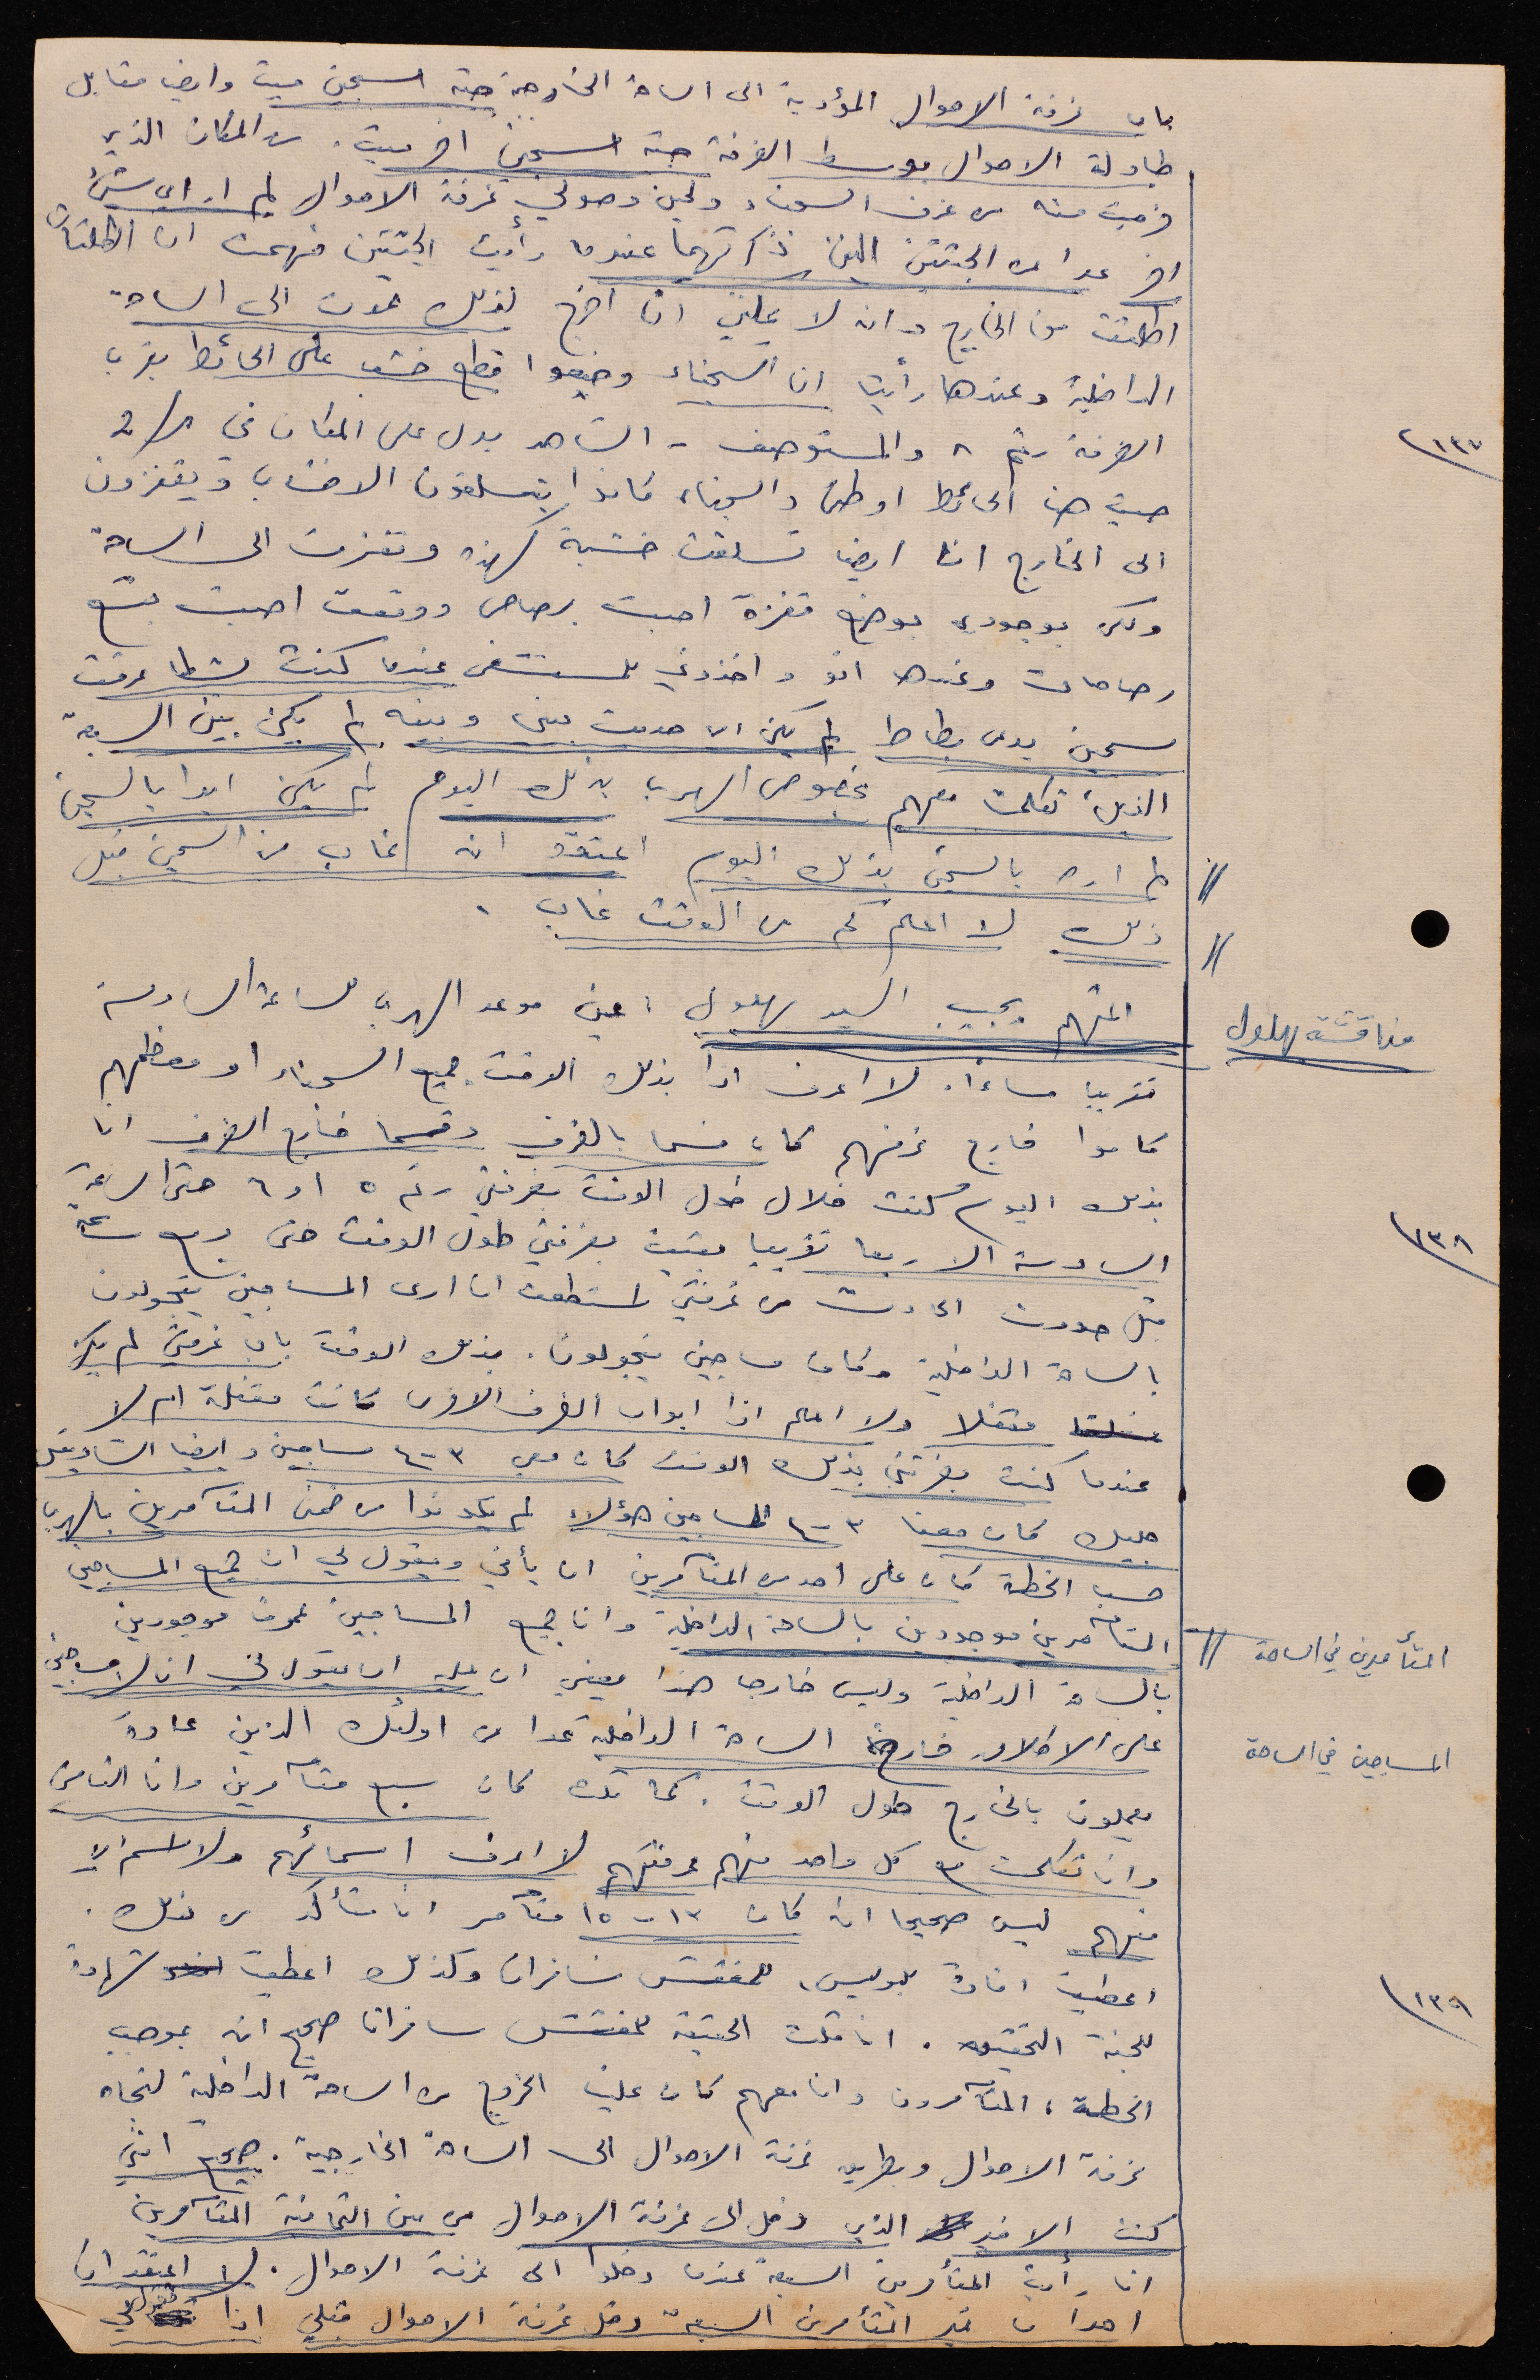 باب غرفة الاموال المؤدية الى الساحة الخارجية جثة السجين ميت وايضا مقابل
طاولة الاموال بوسط الغرفة جثة السجين اخر ميت. من المكان الذي
خرجت منه من غرف السجناء ولحين وصولي غرفة الاموال لم ار اي شيء
اخر عدا من الجثتين اللين ذكرتهما عندما رأيت الجثتين فهمت ان الطلقات
اطلقت من الخارج وانه لا يمكنني انا اخرج لذلك عدت الى الساحة
الداخلية وعندها رأيت ان السجناء وضعوا قطع خشب على الحائط بقرب
الغرفة رقم ٨ والمستوصف - الشاهد يدل على المكان في م/2
١٣٧
حيث هنا الحائط اوطى والسجناء كانوا يتسلقون الاخشاب ويقفزون
الى الخارج انا ايضا تسلقت خشبة كهذه وقفزت الى الساحة
ولكن بوجودي بوضع قفزة اصبت برصاص ووقعت اصبت بتسع
رصاصات وعندها اتو واخذوني للمستشفى عندما كنت بشطا عرفت
سجين يدعى بطاط لم يكن اي حديث بيني وبينه لم يكن بين السبعة
الذين تكلمت معهم بخصوص الهرب بذلك اليوم لم يكن ابدا بالسجن
لم اره بالسجن بذلك اليوم اعتقد انه غاب من السجن قبل
ذلك لا اعلم كم من الوقت غاب.
مناقشة بهلول
المتهم يجيب السيد بهلول: عين موعد الهرب للساعة السادسة
تقريبا مساءا. لا اعرف اذا بذلك الوقت جميع السجناء او معظمهم
كانوا خارج غرفهم كان قسما بالغرف وقسما خارج الغرف انا
بذلك اليوم كنت خلال طول الوقت بغرفتي رقم ٥ او ٦ حتى الساعة
١٣٨
السادسة الا ربعا تقريبا بقيت بغرفتي طول الوقت حتى ربع ساعة
قبل حدوث الحادث من غرفتي استطعت ان ارى المساجين يتجولون
بالساحة الداخلية وكان مساجين يتجولون. بذلك الوقت باب غرفتي لم يكن
مقفلا ولا اعلم اذا ابواب الغرف الاخرى كانت مقفلة ام لا
عندما كنت بغرفتي بذلك الوقت كان معي ٣-٤ مساجين وايضا الشاويش
كان معنا ٣-٤ المساجين هؤلاء لم يكونوا من ضمن المتآمرين بالهرب
حسب الخطة كان على احد من المتآمرين ان يأتي ويقول لي ان جميع المساجين
المتآمرين في الساحة
المتآمرين موجودين بالساحة الداخلية وان جميع المساجين عموما موجودين
بالساحة الداخلية وليس خارجا هذا يعني ان عليه ان يقول لي ان لا مساجين
المساجين في الساحة
على الاطلاق خارج الساحة الداخلية عدا من اولئك الذين عادة
يعملون بالخارج طول الوقت. كما قلت كان سبع متآمرين وانا الثامن
وان تكلمت مع كل واحد منهم عرفتهم لا اعرف اسمائهم ولا اسم اي
منهم ليس صحيحا انه كان ١٣-١٥ متآمر انا متأكد من ذلك.
١٣٩
اعطيت افادة للبوليس، للمفتش سافران وكذلك اعطيت شهادة
للجنة التحقيق. انا قلت الحقيقة للمفتش سافران صحيح انه بموجب
الخطة، المتآمرون وانا معهم كان علينا الخروج من الساحة الداخلية لتجاه
غرفة الاموال وبطريق غرفة الاموال الى الساحة الخارجية. صحيح انني
كنت الاخير الذي دخل الى غرفة الاموال من بين الثمانية المتآمرين
انا رأيت المتأمرين السبعة عندما دخلوا الى غرفة الاموال. لا اعتقد ان
احدا من المتأمرين السبعة دخل غرفة الاموال قبلي اذا تقول لي